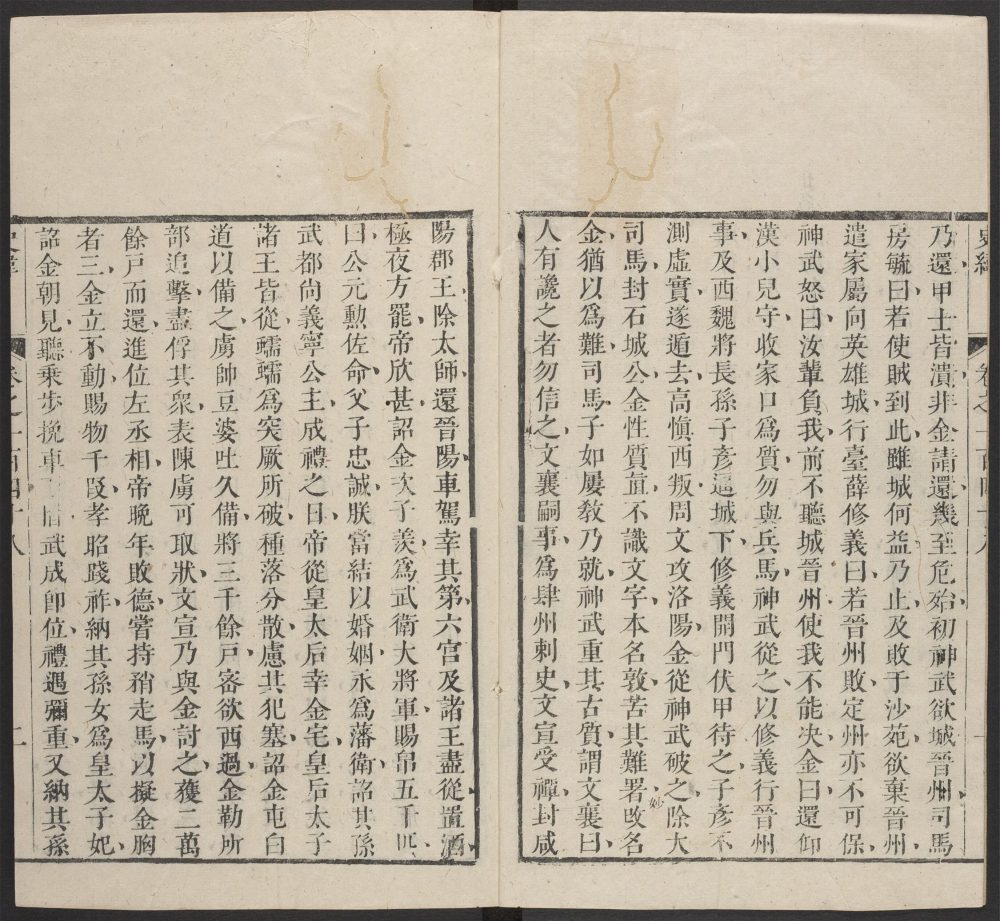 乃還甲士皆潰非金請還幾至危殆初神武欲城晉州司馬
房毓曰若使賊到此雖城何益乃止及敗于沙苑欲棄晉州
遣家屬向英雄城行臺薛修義曰若晉州敗定州亦不可保
神武怒曰汝輩負我前不聽城晉州使我不能决金曰還仰
漢小兒守收家口爲質勿與兵馬神武從之以修義行晉州
事及西魏將長孫子彥逼城下修義開門伏甲待之子彥不
測虛實遂遁去高愼西叛周文攻洛陽金從神武破之除大
司馬封石城公金性質直不識文字本名敦苦其難署改名
金猶以爲難司馬子如屢教乃就神武重其古質謂文襄曰
人有讒之者勿信之文襄嗣事爲肆州刺史文宣受禪封咸
妙
陽郡王除太師還晉陽車駕幸其第六官及諸王盡從置酒
極夜方罷帝欣甚詔金次子羨爲武衛大將軍賜帛五千匹
曰公元勳佐命父子忠誠朕當結以婚姻永爲藩衛詔其孫
武都尙義寧公主成禮之日帝從皇太后幸金宅皇后太子
諸王皆從蠕蠕爲突厥所破種落分散慮其犯塞詔金屯白
道以備之虜帥豆婆吐久備將三千餘戸密欲西過金勒所
部追擊盡俘其衆表陳虜可取狀文宣乃與金討之獲二萬
餘戸而還進位左丞相帝晚年敗德嘗持矟走馬以擬金胸
者三金立不動賜物千段孝昭踐祚納其孫女爲皇太子妃
詔金朝見聽乗步挽車 階武成卽位禮遇彌重又納其孫
卷之一百四十八
二